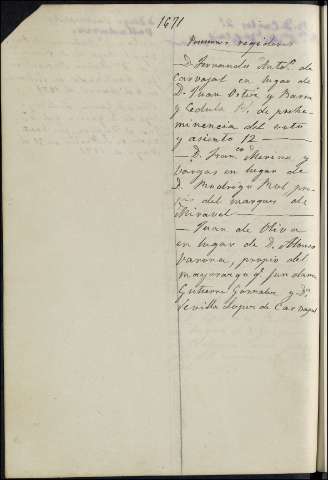 1671
regidores
D. Fernando Antº. de
Carvajal en lugar de
D. Juan Ortiz y
y Cedula Rl. de prehe-
minencia del voto
y asiento 12
D. Franco. Moreno y
Vargas en lugar de
D. Rodrigo Rol, pro-
pio del marques de
Miravel
Juan de Oliva
en lugar de D. Alonso
Varona, propio del
mayorazgo q. fundaron
Gutierre Gonzalez y Dª.
Sevilla Lopez de Carvajal